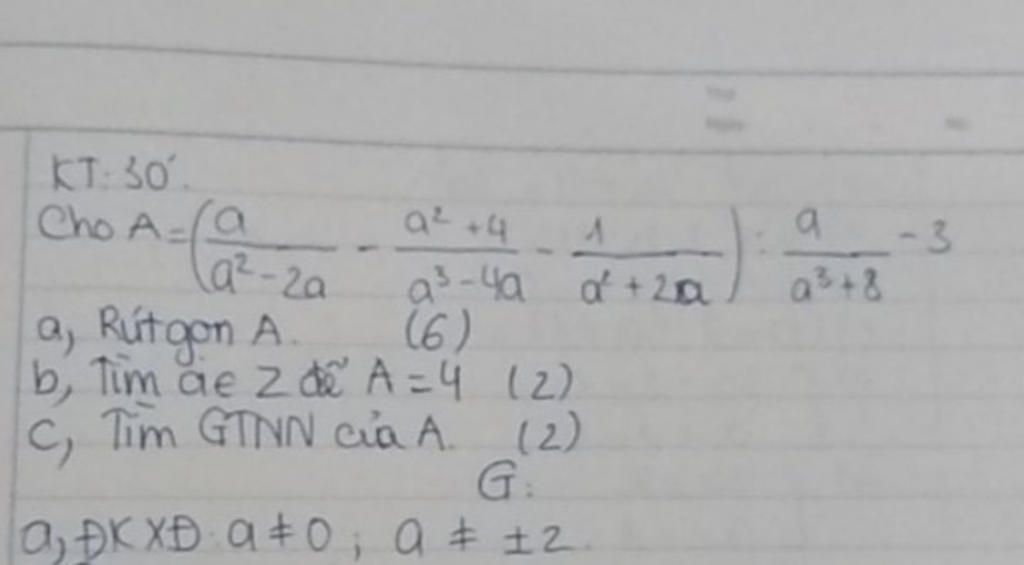 KT: 30'.
Cho A = (a/(a² - 2a) - (a² + 4)/(a³ - 4a) - 1/(a² + 2a)) : a/(a³ + 8) - 3
a, Rút gọn A. (6)
b, Tìm a ∈ Z để A = 4 (2)
c, Tìm GTNN của A. (2)
G:
a, ĐKXĐ. a ≠ 0 ; a ≠ ±2.